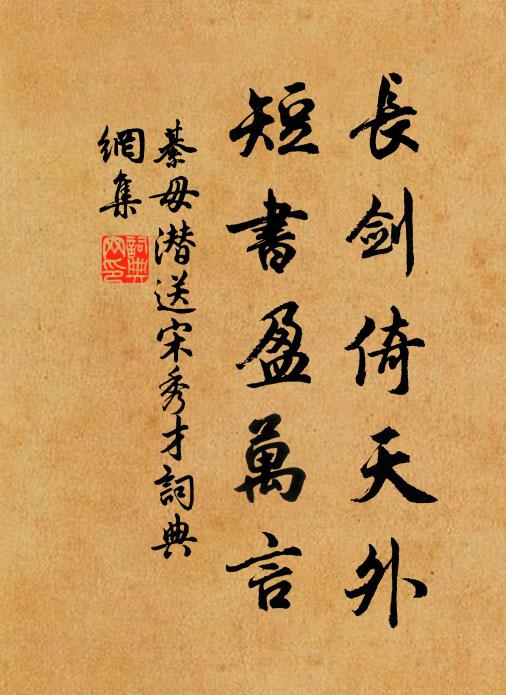 長剑倚天外
短書盈萬言
綦毋潜送宋秀才詞典
網集
詞典
网印